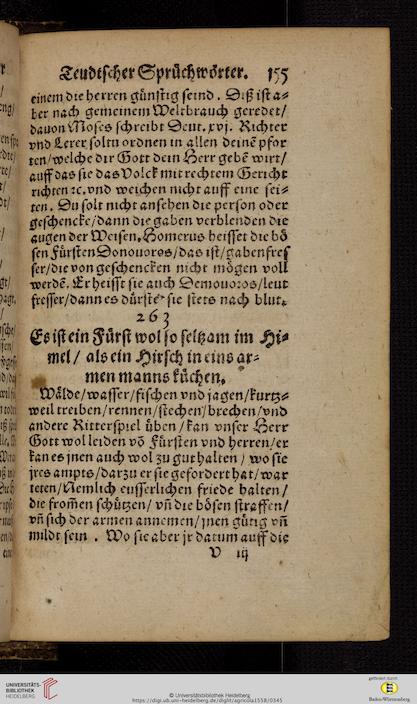 Teudtscher Sprüchwörter. 155
einem die herren günstig seind. Diß ist a-
ber nach gemeinem Weltbrauch geredet/
dauon Moses schreibt Deut. xvj. Richter
vnd Lerer soltu ordnen in allen deinē pfor
ten/welche dir Gott dein Herr gebē wirt/
auff das sie das Volck mit rechtem Gericht
richten ꝛc. vnd weichen nicht auff eine sei-
ten. Du solt nicht ansehen die person oder
geschencke/dann die gaben verblenden die
augen der Weisen. Homerus heisset die bö
sen Fürsten Donouoros/das ist/gabenfres
ser/die von geschencken nicht mögen voll
werdē. Er heisst sie auch Demouoros/leut
fresser/dann es dürste sie stets nach blut.
263
Es ist ein Fürst wol so seltzam im Hi-
mel/ als ein Hirsch in eins ar-
men manns küchen.
Wälde/wasser/fischen vnd jagen/kurtz-
weil treiben/rennen/stechen/brechen/vnd
andere Ritterspiel üben/kan vnser Herr
Gott wol leiden vō Fürsten vnd herren/er
kan es jnen auch wol zu gut halten/ wo sie
jres ampts/darzu er sie gefordert hat/war
teten/Nemlich eusserlichen friede halten/
die from̄en schützen/ vn̄ die bösen straffen/
vn̄ sich der armen annemen/jnen gütig vn̄
mildt sein. Wo sie aber jr datum auff die
V iij
UNIVERSITÄTS-
BIBLIOTHEK
HEIDELBERG
© Universitätsbibliothek Heidelberg
https://digi.ub.uni-heidelberg.de/diglit/agricola1558/0345
gefördert durch
Baden-Württemberg